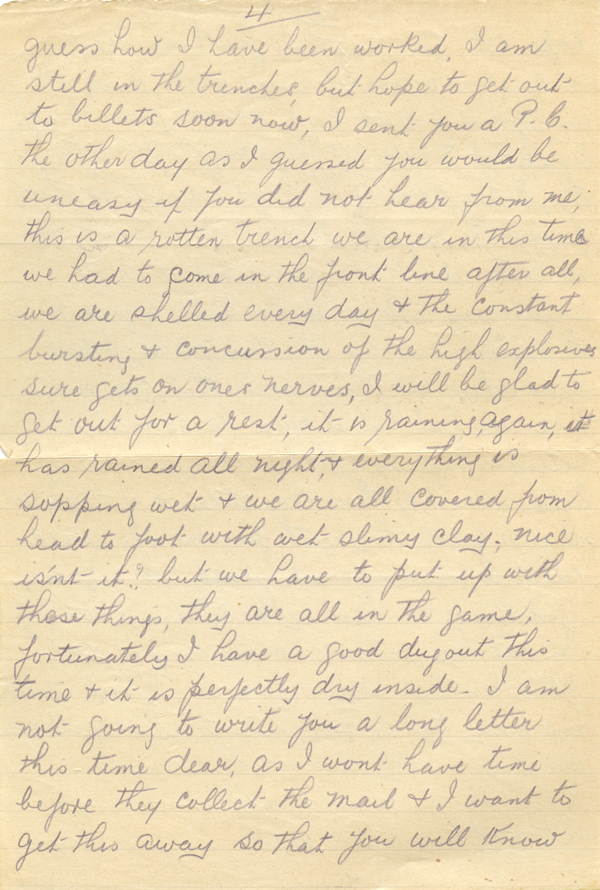 4
guess how I have been worked. I am
still in the trenches, but hope to get out
to billets soon now, I sent you a P.C.
the other day as I guessed you would be
uneasy if you did not hear from me,
this is a rotten trench we are in this time
we had to come in the front line after all,
we are shelled every day & the constant
bursting & concussion of the high explosives
sure gets on ones nerves, I will be glad to
get out for a rest, it is raining, again, it
has rained all night, & everything is
sopping wet & we are all covered from
head to foot with wet slimy clay, nice
is'nt it? but we have to put up with
these things, they are all in the game,
fortunately I have a good dugout this
time & it is perfectly dry inside. I am
not going to write you a long letter
this time dear, as I wont have time
before they collect the mail & I want to
get this away so that you will know